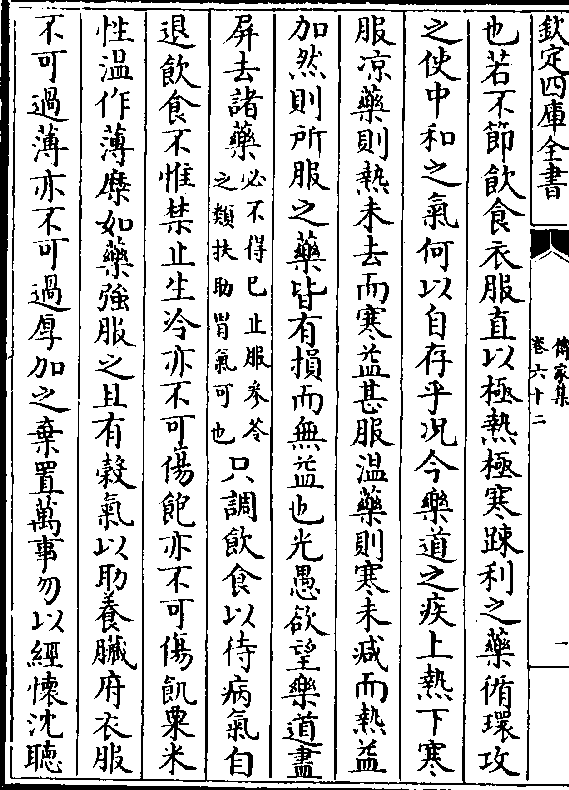 欽定四庫全書
傳家集
卷六十二
一
也若不節飲食衣服直以極熱極寒踈利之藥循環攻
之使中和之氣何以自存乎况今樂道之疾上熱下寒
服凉藥則熱未去而寒益甚服温藥則寒未减而熱益
加然則所服之藥皆有損而無益也光愚欲望樂道盡
屏去諸藥必不得已止服參苓之類扶助胃氣可也只調飲食以待病氣自
退飲食不惟禁止生冷亦不可傷飽亦不可傷飢粟米
性温作薄糜如藥強服之且有穀氣以助養臟府衣服
不可過薄亦不可過厚加之棄置萬事勿以經懷沈聴